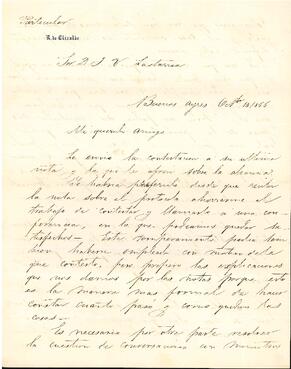 Particular
R. de Elizalde
Sor. D. J. V. Lastarria
Buenos Ayres Oct.
Mi querido amigo
Le envio la contestacion a su ultima
nota, y la que le
Yo habria preferido desde que recibi
la nota sobre el protesto ahorrarme el
trabajo de contestar y llamarlo a una con-
ferencia, en la que podiamos quedar sa-
tisfechos. Este temperamento podia tam-
bien haberse empleado con motivo de la
que contesto, pero prefiero las esplicaciones
que nos damos por las notas porque esta
es la manera mas formal de hacer
constar cuanto pasa y como quedan las
cosas.
Es necesario por otra parte resolver
la cuestion de conversaciones un ministro